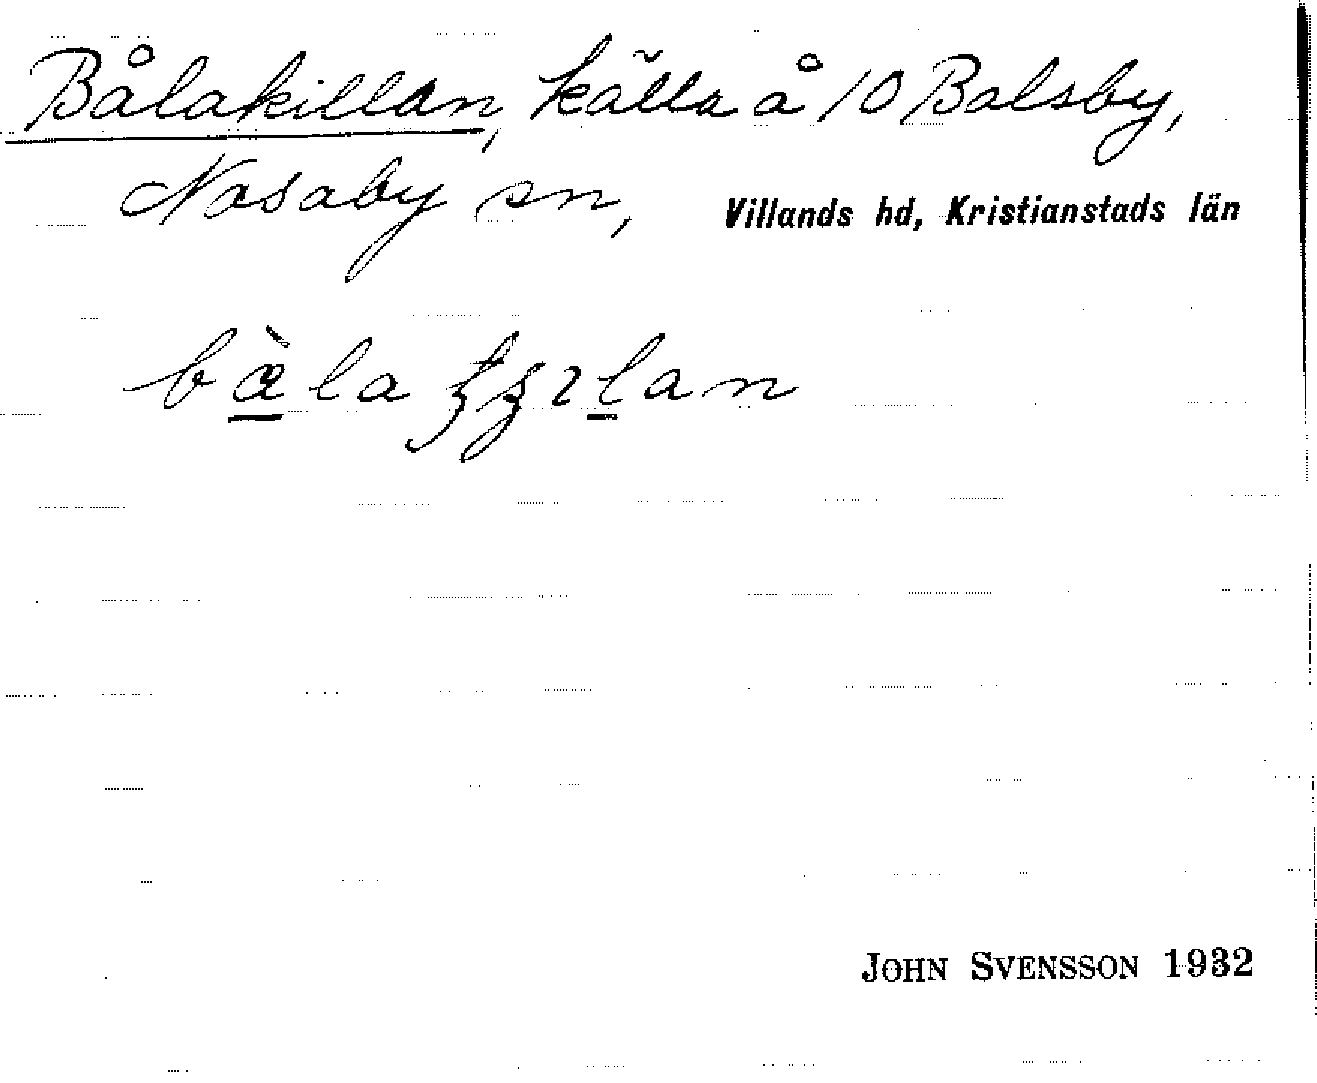 Bålakillan, källa å 10 Balsby,
Nosaby sn, Villands hd, Kristianstads län
JOHN SVENSSON 1932